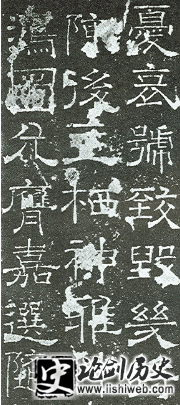 憂哀號致毀幾
後王栖神雅
鴻圖膺嘉選
史 论剑历史
www.iishiweb.com